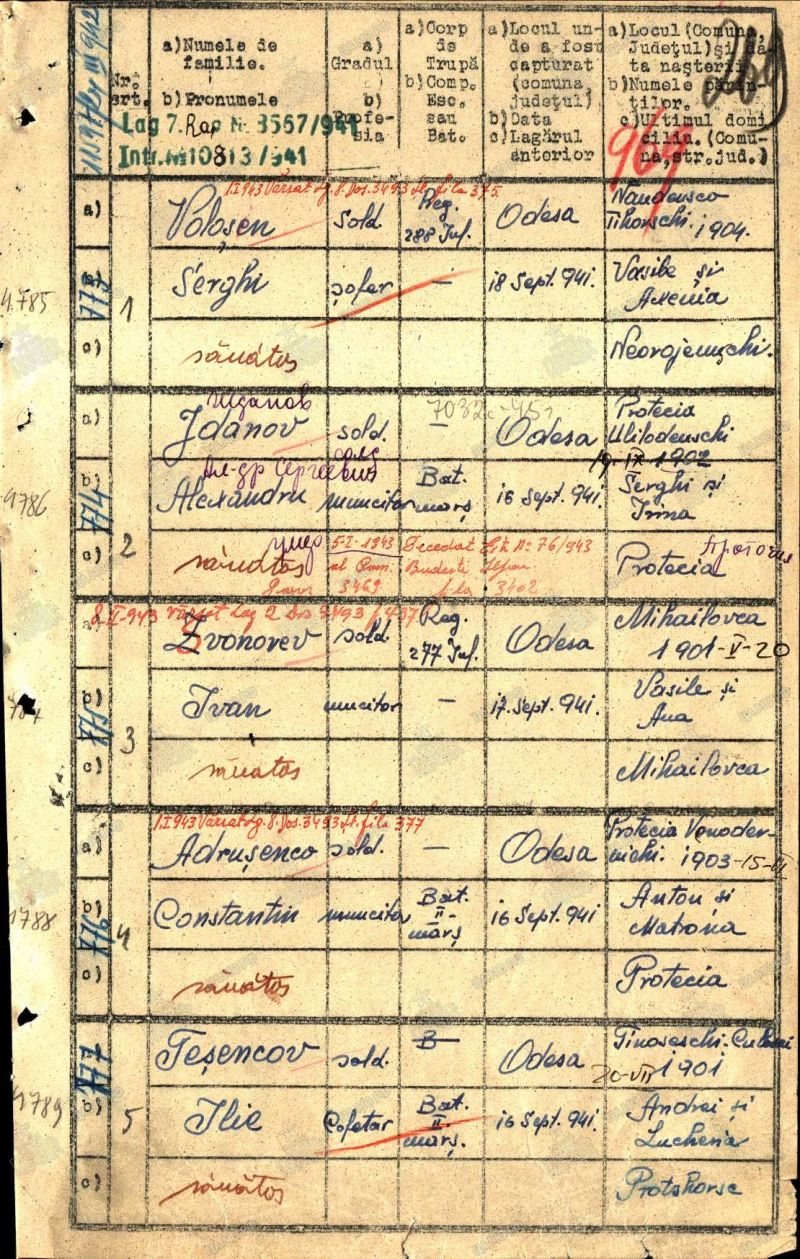 Nr. crt.
a) Numele de familie.
b) Pronumele
a) Gradul
b) Profesia
a) Corp de Trupă
b) Comp. Esc. sau Bat.
a) Locul unde a fost capturat (comuna, judeţul)
b) Data
c) Lagărul anterior
a) Locul (Comuna, Judeţul) şi data naşterii
b) Numele părinţilor.
c) Ultimul domiciliu. (Comuna, str. jud.)
269
969
Lag 7. Rap № 3567/941
Intr. № 10813/941
1.I.943 Vărsat Lg. 8. Dos. 3493 fila 375.
a) Voloşen Sold. Reg. 288 Inf. Odesa 1904.
4.785 773 1 Serghi şofer — 18 Sept. 941. Vasile şi Axenia
c) sănătos
Жданов
a) Jdanov sold. — Odesa Protecia
19-IX 1902
Ал-др Сергеевич
4786 774 b) Alexandru muncitor Bat. marş 16 Sept. 941. Serghi şi Irina
2 c) sănătos 5-I-1943 Decedat № 76/943 Protecia
al Pom. Budesti Ilfov
3469 fila 3402
8.I-943 vărsat Lag 2 Dos 3493 f 437
a) Zvonorev sold. Reg. 277 Inf. Odesa Mihailovca 1901-V-20
775 3 b) Ivan muncitor — 17. Sept. 941. Vasile şi Ana
c) sănătos Mihailovca
1.I.943 Vărsat Lg. 8. Dos. 3493 fila 377
a) Adruşenco sold. — Odesa Protecia 1903-15-VI
4788 776 4 b) Constantin muncitor Bat. II- marş 16 Sept. 941 Anton şi Matrona
c) sănătos Protecia
a) Teşencov sold. B— Odesa 20-VII 1901
4789 777 5 b) Ilie Cofetar Bat. II marş. 16 Sept. 941. Andrei şi Lucheria
c) sănătos